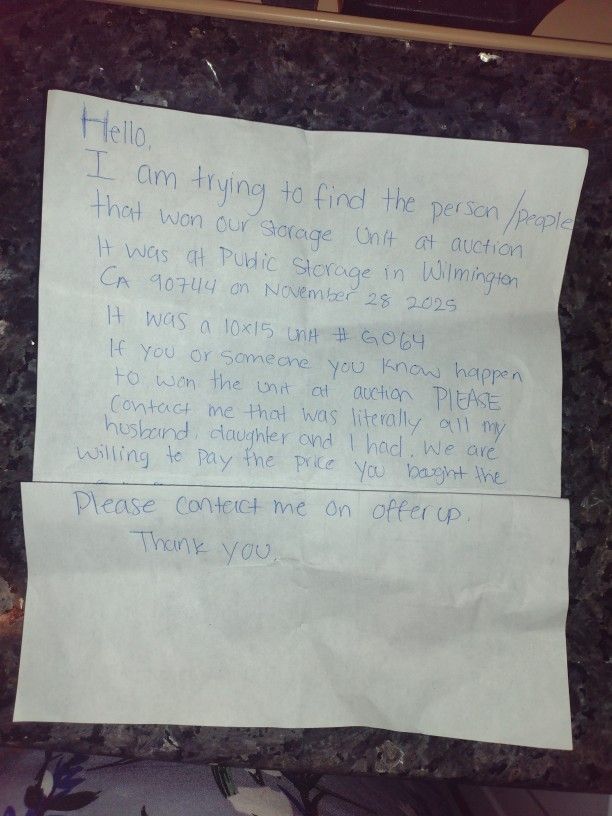 Hello,
I am trying to find the person/people
that won our storage unit at auction
It was at Public Storage in Wilmington
CA 90744 on November 28 2025
It was a 10x15 unit # G064
If you or someone you know happen
to won the unit at auction PLEASE
contact me that was literally all my
husband, daughter and I had. We are
willing to pay the price you bought the
Please contact me on offerup.
Thank you.